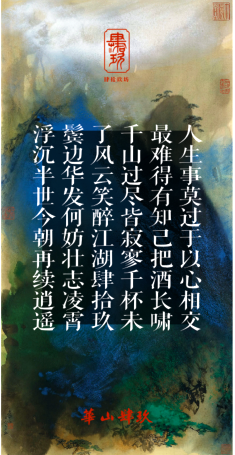 肆玖
人生事莫过于以心相交
最难得有知己把酒长啸
千山过尽皆寂寥千杯未
了风云笑醉江湖肆拾玖
鬓边华发何妨壮志凌霄
浮沉半世今朝再续逍遥
華山肆玖